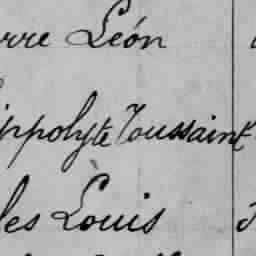 rre León
ippolyte Toussaint
les Louis